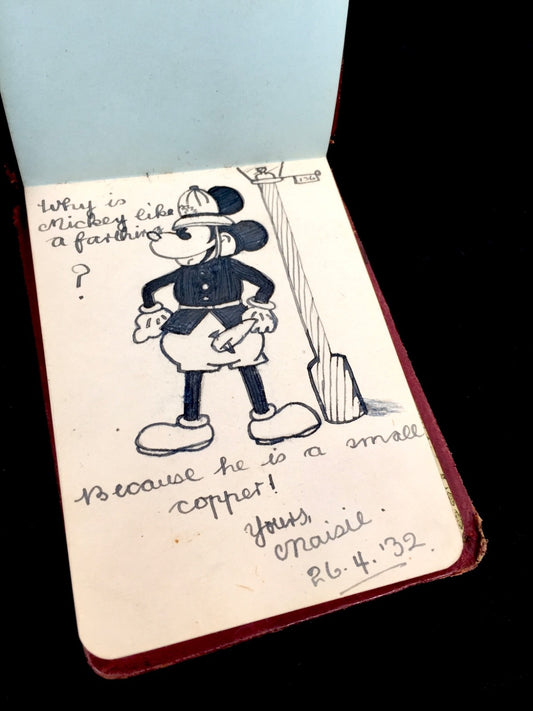 Why is
Mickey like
a farthing
?
Because he is a small
copper!
Yours,
Maisie.
26.4.'32